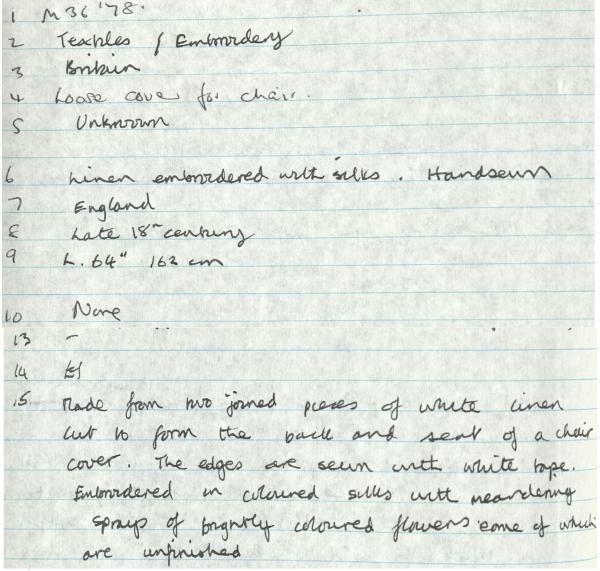 1 M36 '78.
2 Textiles / Embroidery
3 Britain
4 Loose cover for chair.
5 Unknown
6 Linen embroidered with silks. Handsewn
7 England
8 Late 18th century
9 L. 64" 162 cm
10 None
13 -
14
15 Made from two joined pieces of white linen
cut to form the back and seat of a chair
cover. The edges are sewn with white tape.
Embroidered in coloured silks with meandering
sprays of brightly coloured flowers some of which
are unfinished